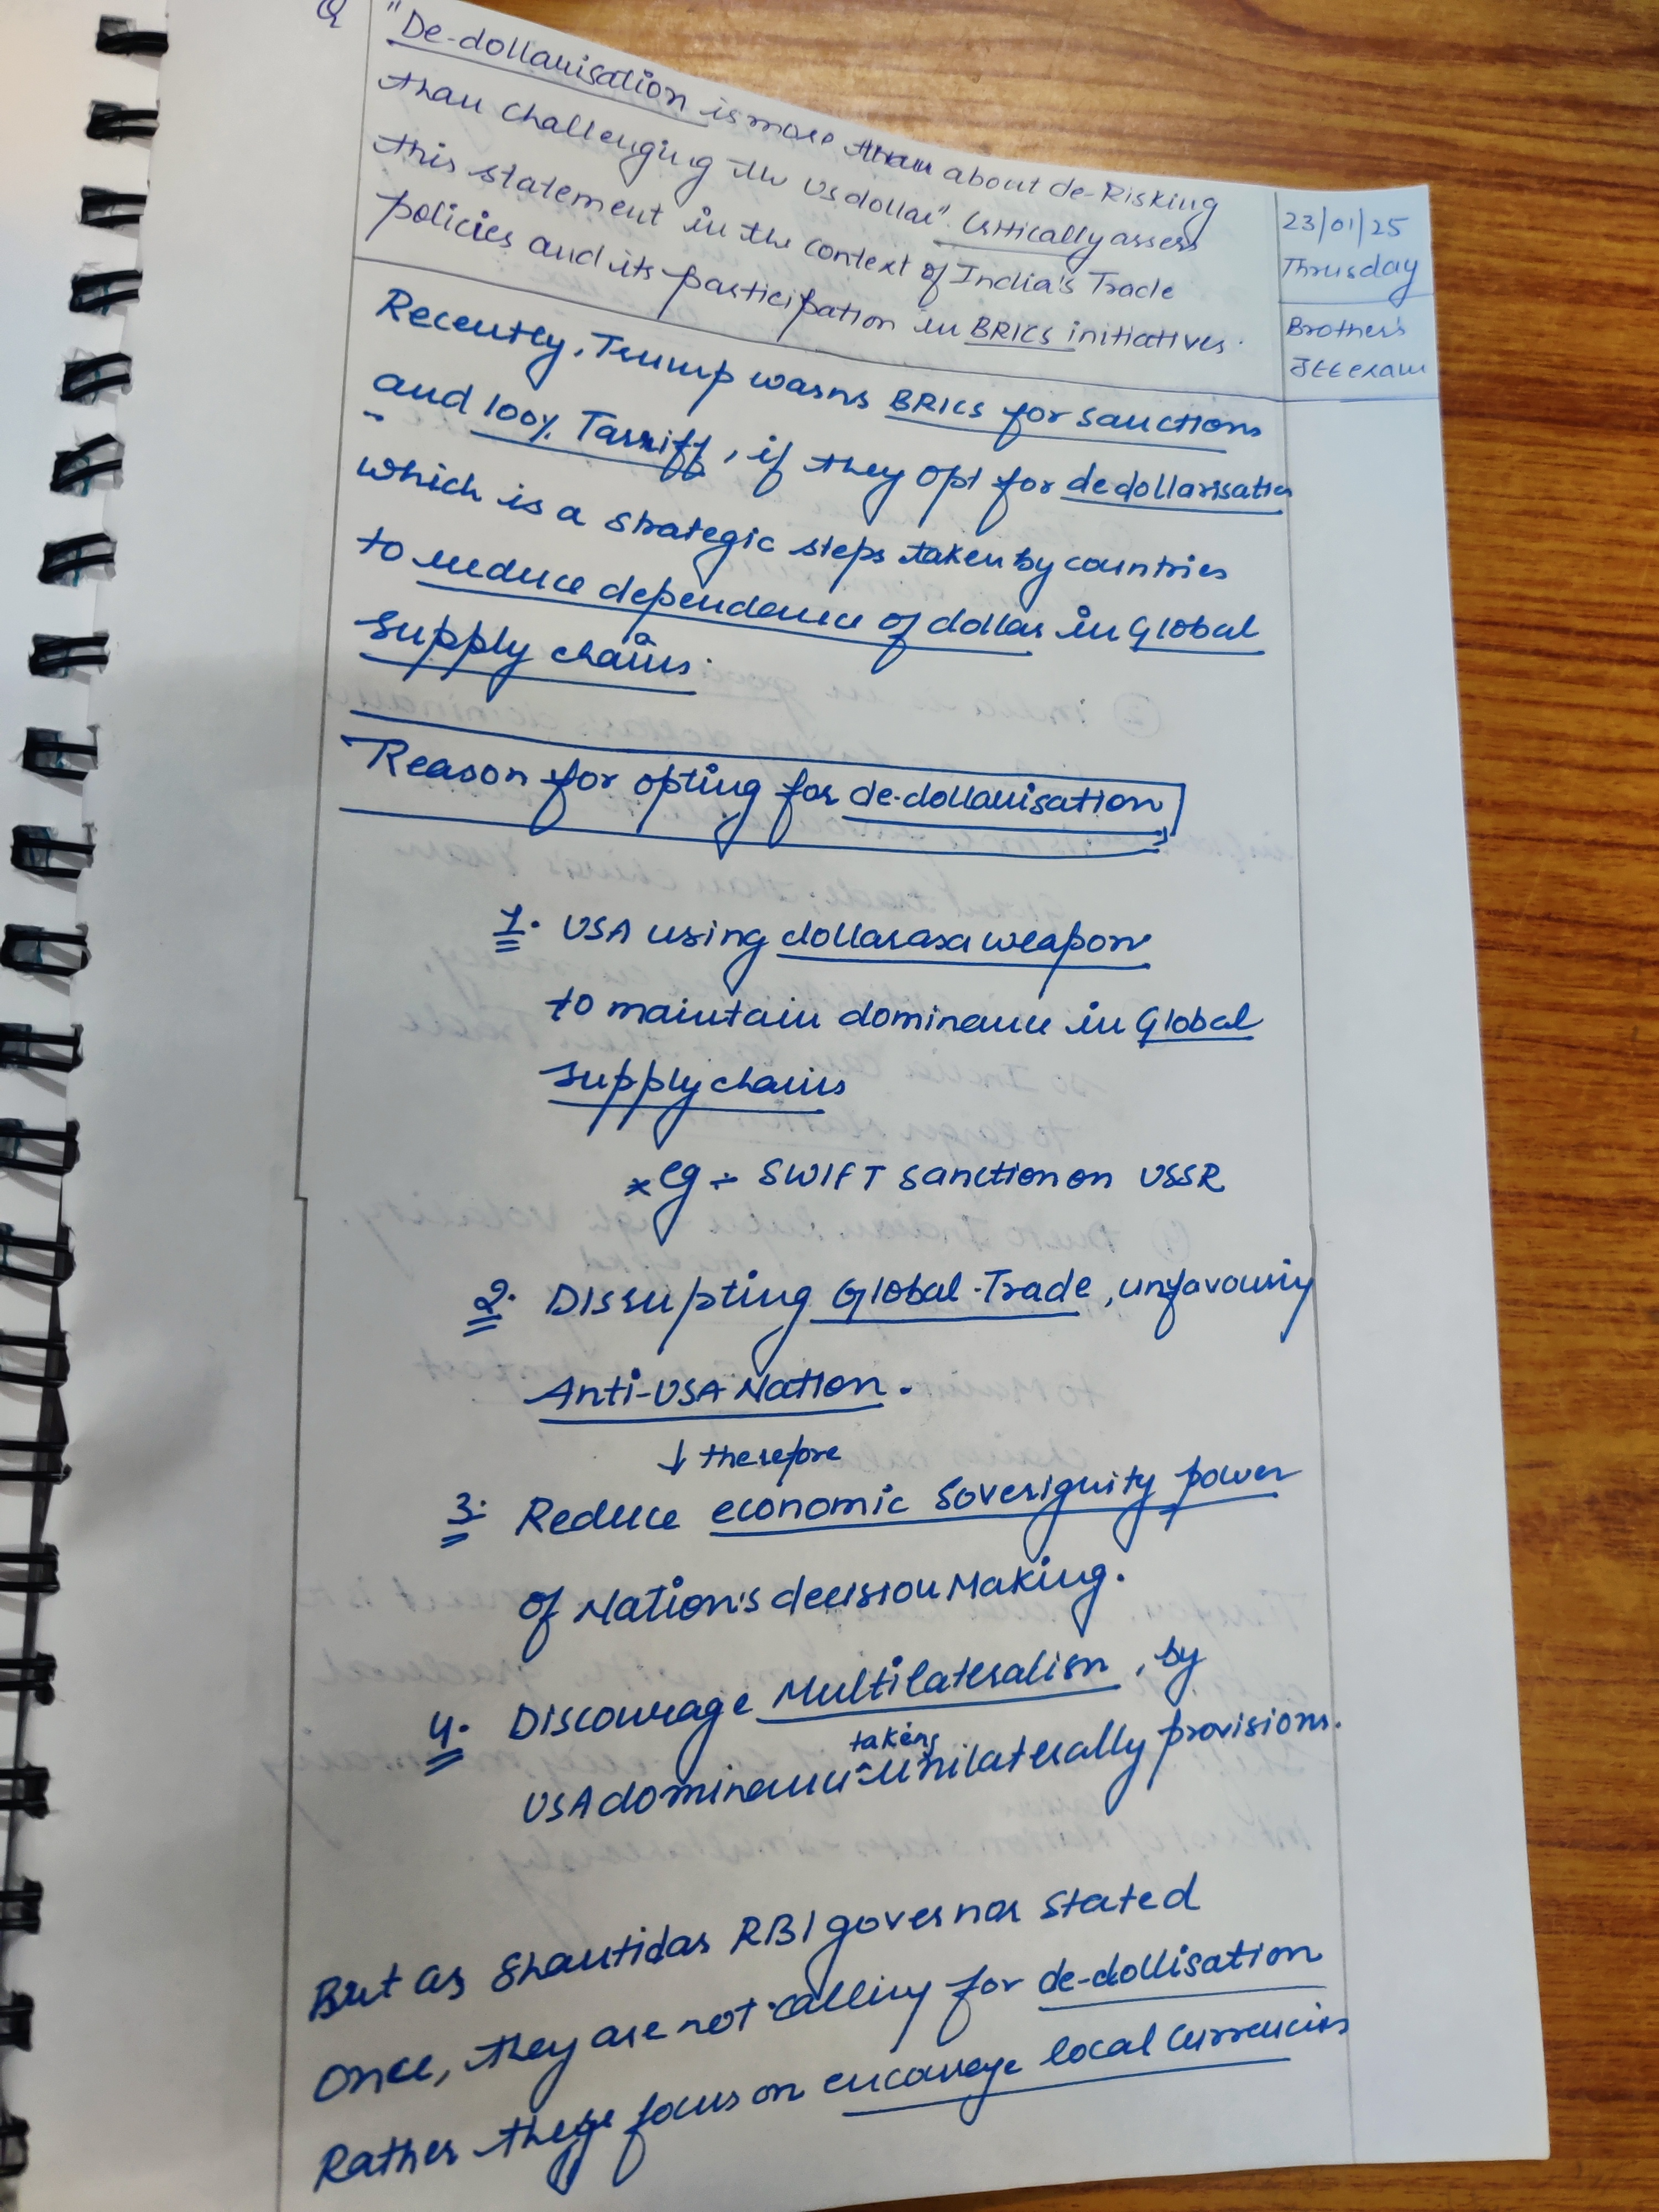 Q "De-dollarisation is more than about de-Risking
than challenging the US dollar". Critically assess
this statement in the context of India's Trade
policies and its participation in BRICS initiatives.
23/01/25
Thrusday
Brother's
JEE exam
Recently, Trump warns BRICS for sanctions
and 100% Tarriff, if they opt for dedollarisation
which is a strategic steps taken by countries
to reduce dependence of dollar in Global
supply chains.
Reason for opting for de-dollarisation
1. USA using dollar as a weapon
to maintain dominance in Global
supply chains
* eg ÷ SWIFT sanction on USSR
2. Disrupting Global Trade, unfavouring
Anti-USA Nation.
↓ therefore
3. Reduce economic soverignity power
of Nation's decision Making.
4. Discourage Multilateralism, by
taking
USA dominance ^ unilaterally provisions.
But as Shantidas RBI governor stated
once, they are not calling for de-dollisation
Rather these focus on encourage local currencies